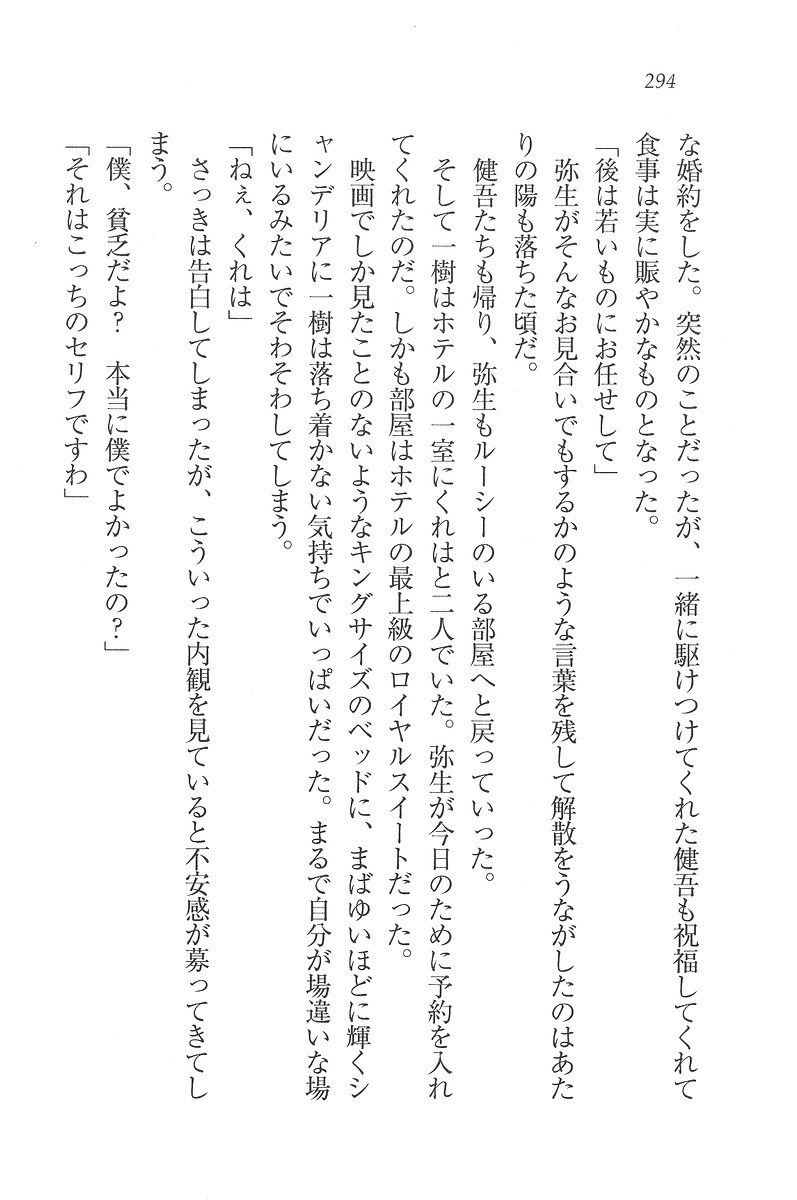 294
な婚約をした。突然のことだったが、一緒に駆けつけてくれた健吾も祝福してくれて
食事は実に賑やかなものとなった。
「後は若いものにお任せして」
弥生がそんなお見合いでもするかのような言葉を残して解散をうながしたのはあた
りの陽も落ちた頃だ。
健吾たちも帰り、弥生もルーシーのいる部屋へと戻っていった。
そして一樹はホテルの一室にくれはと二人でいた。弥生が今日のために予約を入れ
てくれたのだ。しかも部屋はホテルの最上級のロイヤルスイートだった。
映画でしか見たことのないようなキングサイズのベッドに、まばゆいほどに輝くシ
ャンデリアに一樹は落ち着かない気持ちでいっぱいだった。まるで自分が場違いな場
にいるみたいでそわそわしてしまう。
「ねぇ、くれは」
さっきは告白してしまったが、こういった内観を見ていると不安感が募ってきてし
まう。
「僕、貧乏だよ？　本当に僕でよかったの？」
「それはこっちのセリフですわ」